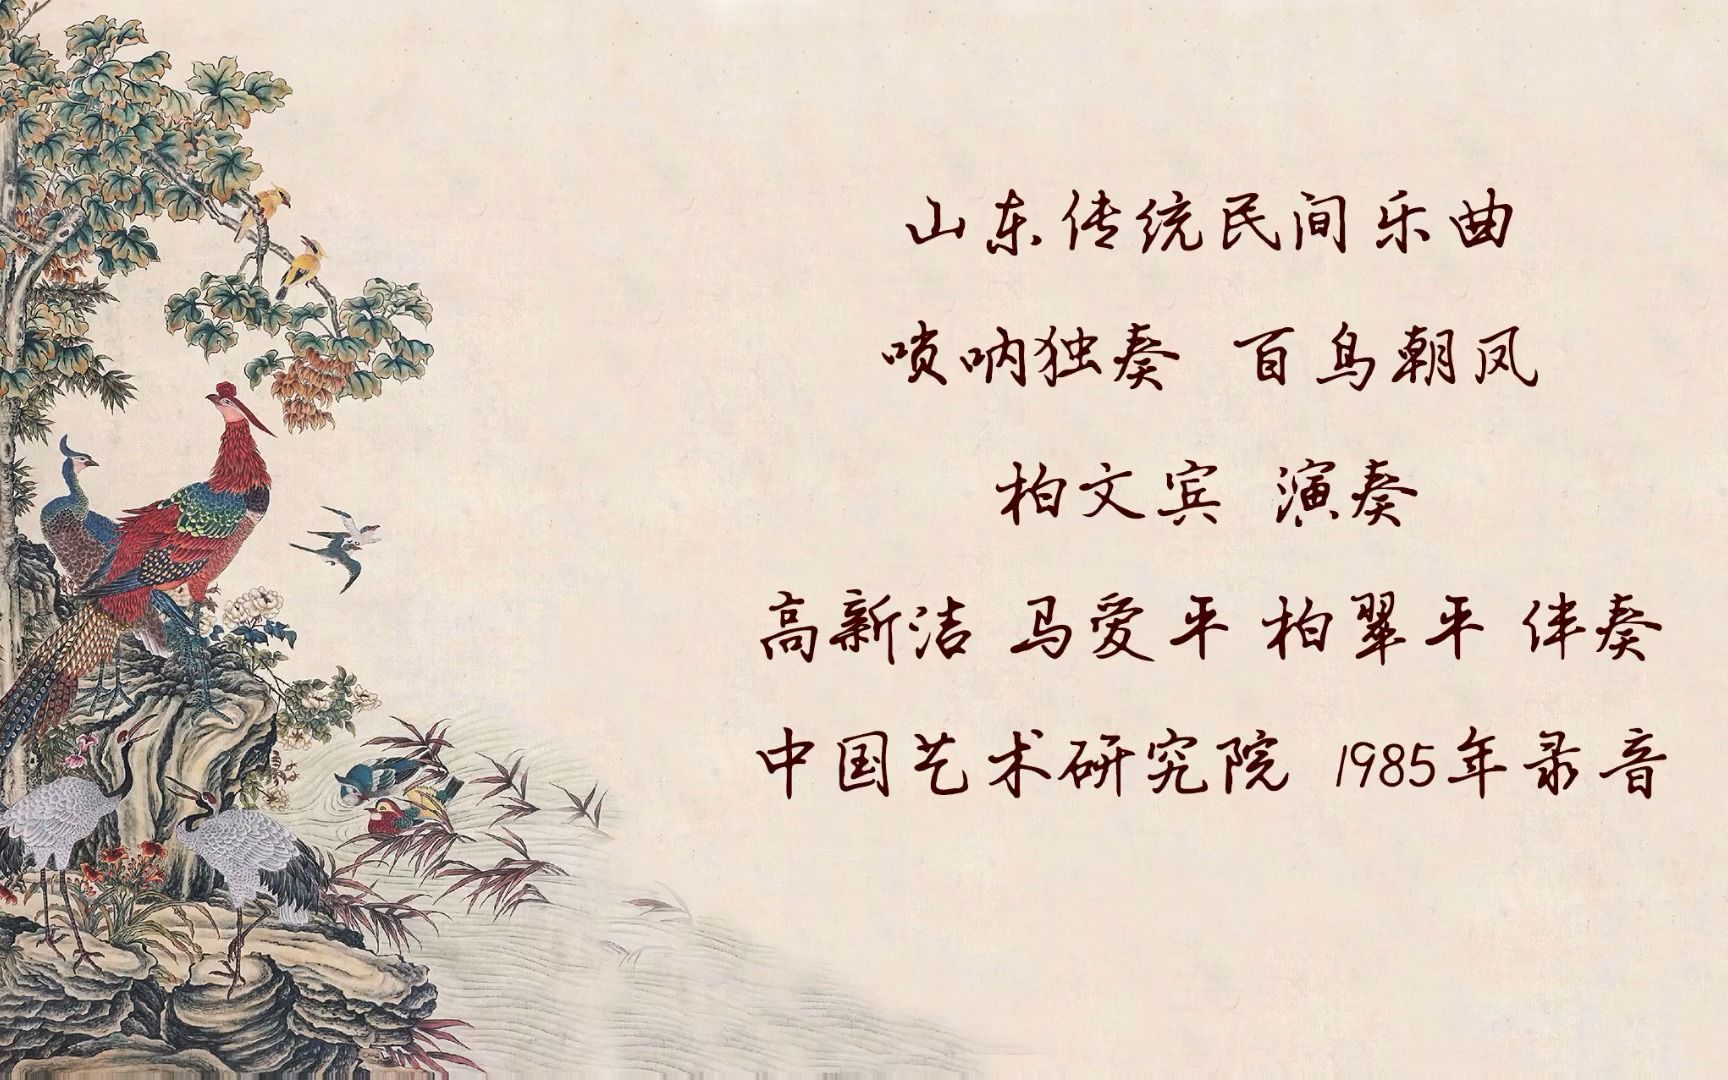 山东传统民间乐曲
唢呐独奏 百鸟朝凤
柏文宾 演奏
高新洁 马爱平 柏翠平 伴奏
中国艺术研究院 1985年录音